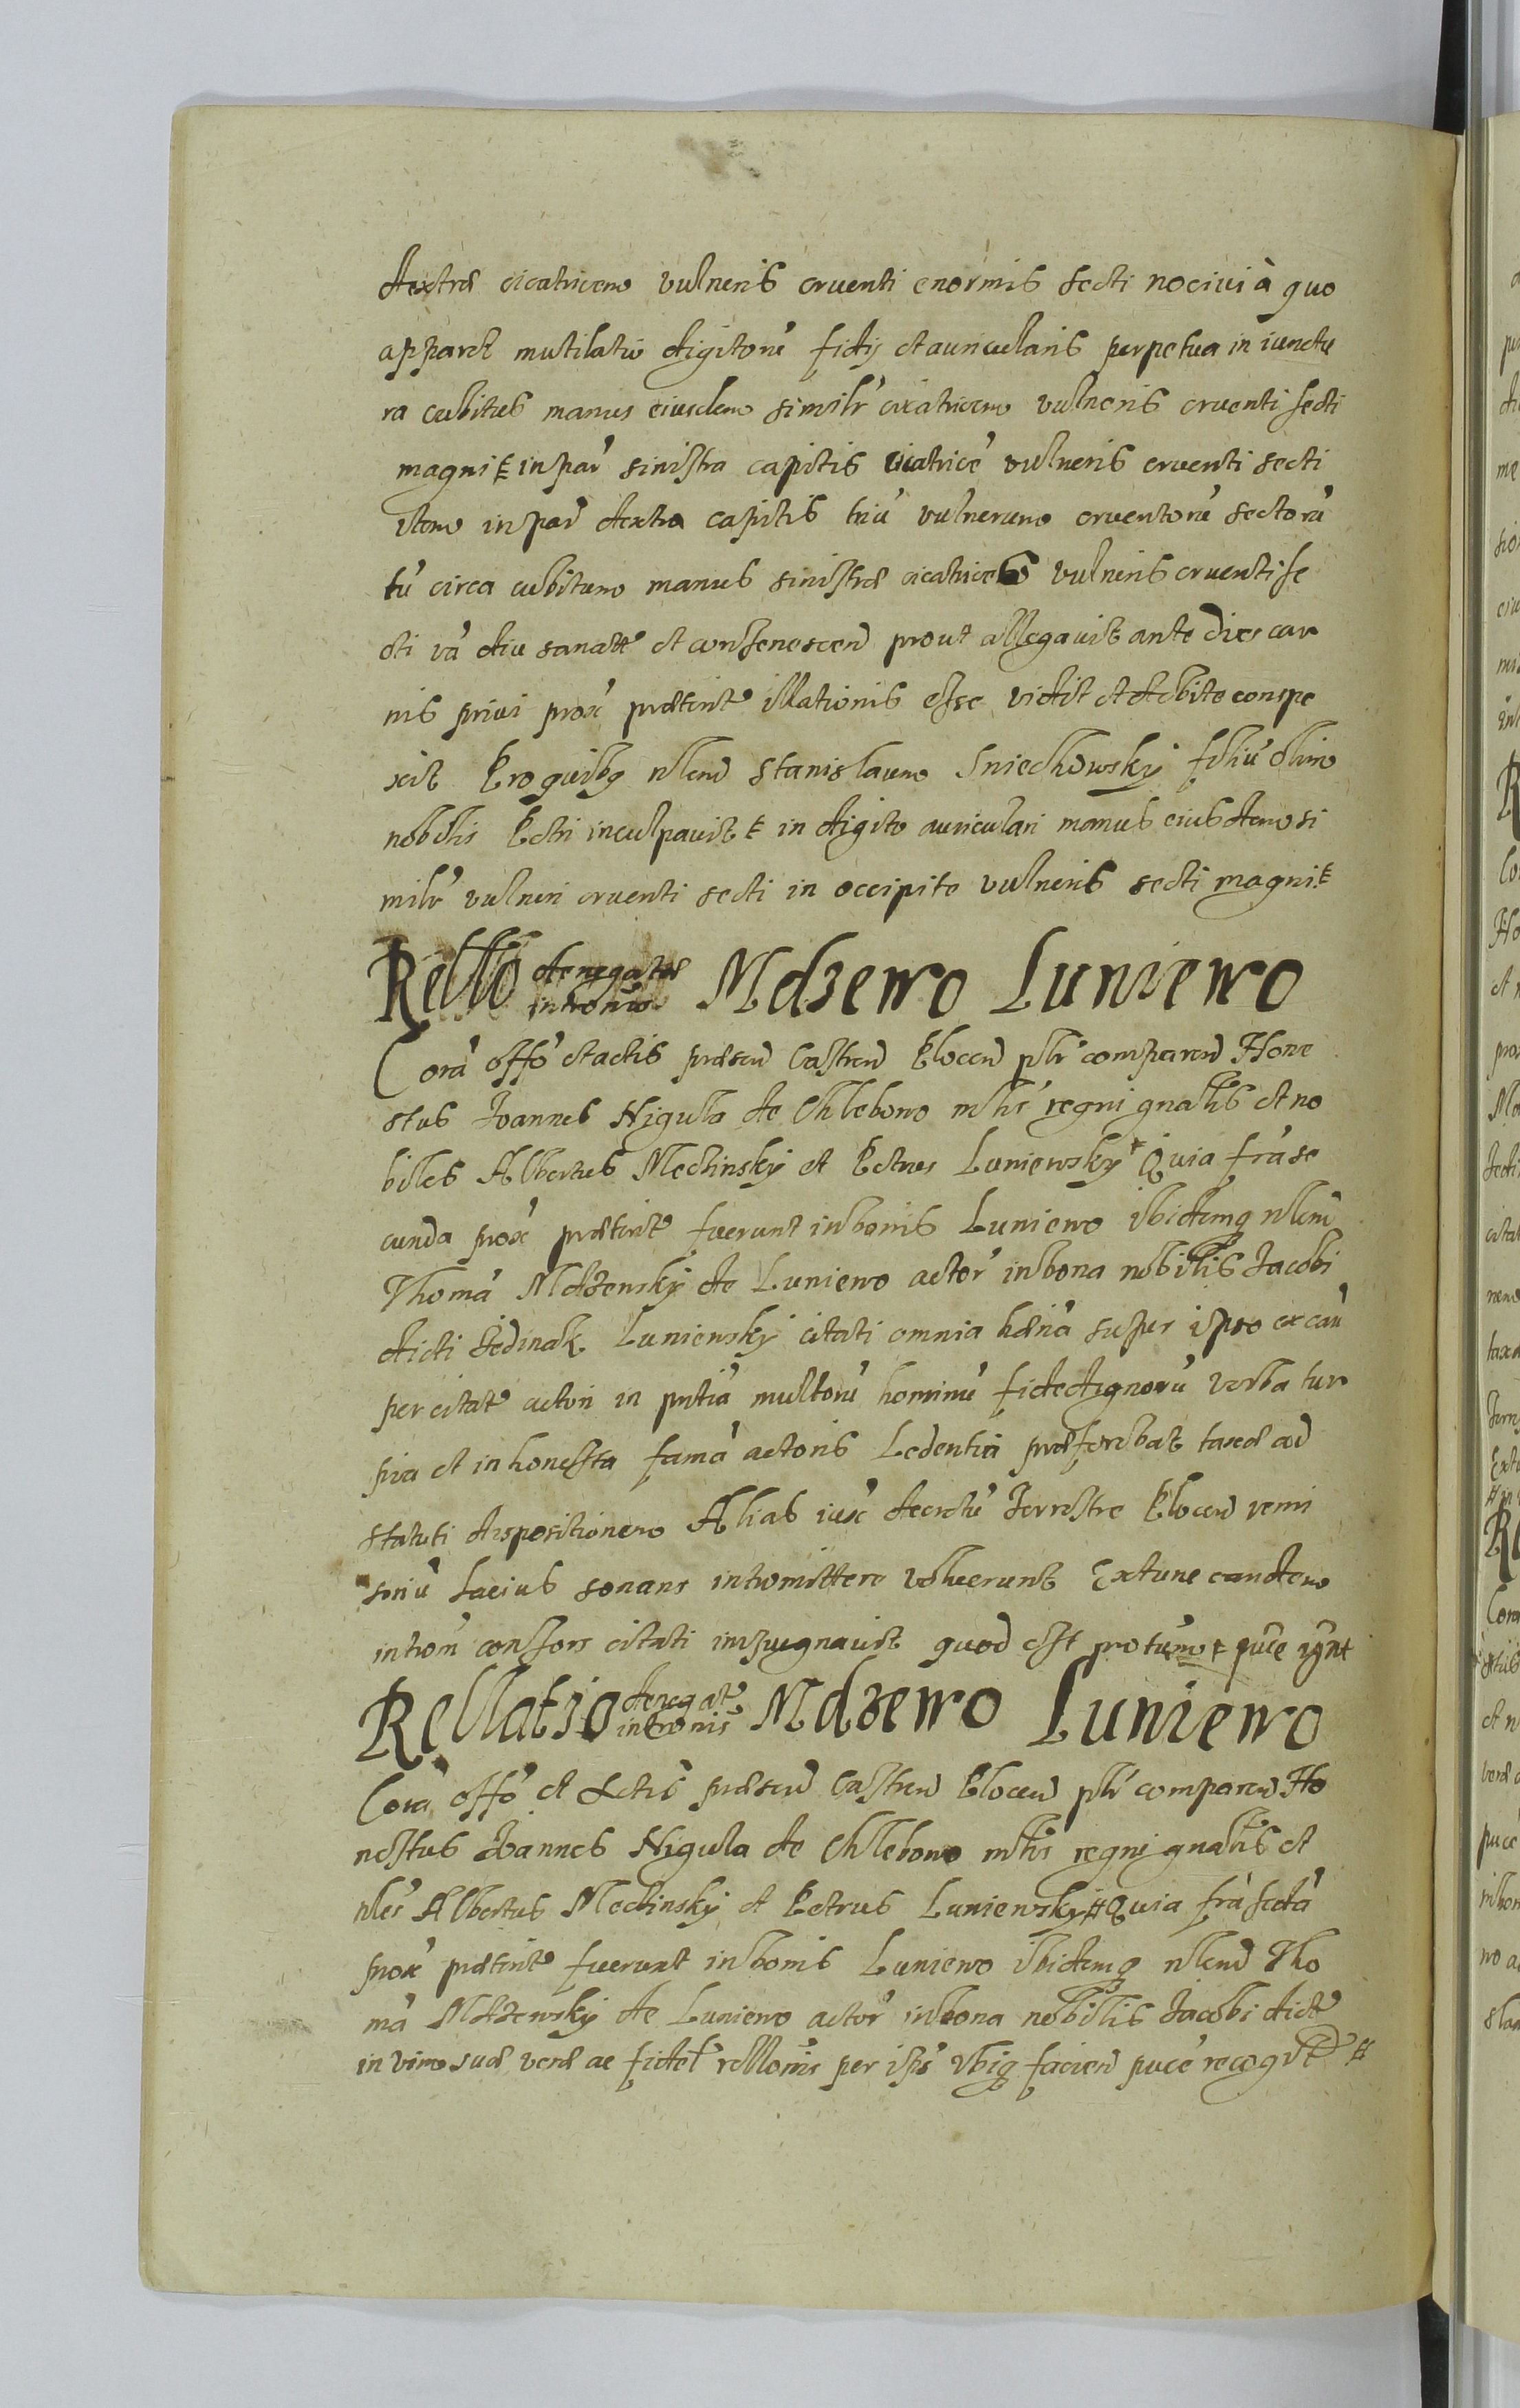 dextræ cicatricem vulneris cruenti enormis secti nocivi à quo
apparet mutilatio digitorũ fidis et auricularis perpetua in iunctu
ra cubitus manus eiusdem similr cicatricem vulneris cruenti secti
magni et in par sinistra capitis cicatricẽ vulneris cruenti secti
item in par dextra capitis triũ vulnerum cruentorũ sectorũ
tũ circa cubitum manus sinistræ cicatricem vulneris cruenti se
cti iã diu sanatæ et consenescen prout allegavit ante dies car
nis privi prox præterit illationis esse vidit et debite conspe
xit Pro quibq nlem Stanislaum Sniechowsky filiũ olim
nobilis Petri inculpavit et in digito auriculari manus eiusdem si
milr vulneri cruenti secti in occipite vulneris secti magni
Rello denegatæ intronis Mdzewo Luniewo
Corã offo et actis præsen Castren Plocen plr comparen Hone
stus Ioannes Nigula de Chlebowo mlis regni gnalis et no
biles Albertus Mechinsky et Petrus Luniewsky Quia fra se
cunda prox præterit fuerunt in bonis Luniewo ibidemq nlem
Thomã Mdzewsky de Luniewo actor in bona nobilis Iacobi
dicti Jedinak Luniewsky citati omnia hæria super ipso ex cau
per citat actori in pntia multorũ hominũ fide dignorũ verba tur
pia et inhonesta famã actoris Ledentia præferebat taxæ ad
statuti dispositionem Alias iux decretũ Terrestre Plocen remi
soriũ Lacius sonans intromittere voluerunt Extunc eandem
introm consors citati impugnavit quod est
Rellatio denegat intronis Mdzewo Luniewo
Corã offo et Actis præsen Castren Plocen plr comparen Ho
nestus Ioannes Nigula de Chlebowo mlis regni gnalis et
nles Albertus Mechinsky et Petrus Luniewsky Quia fra secda
prox præterit fuerunt in bonis Luniewo ibidemq nlem Tho
mã Mdzewsky de Luniewo actor in bona nobilis Iacobi dict
in vim suæ veræ ac fidel rellonis per ips ibiq facien